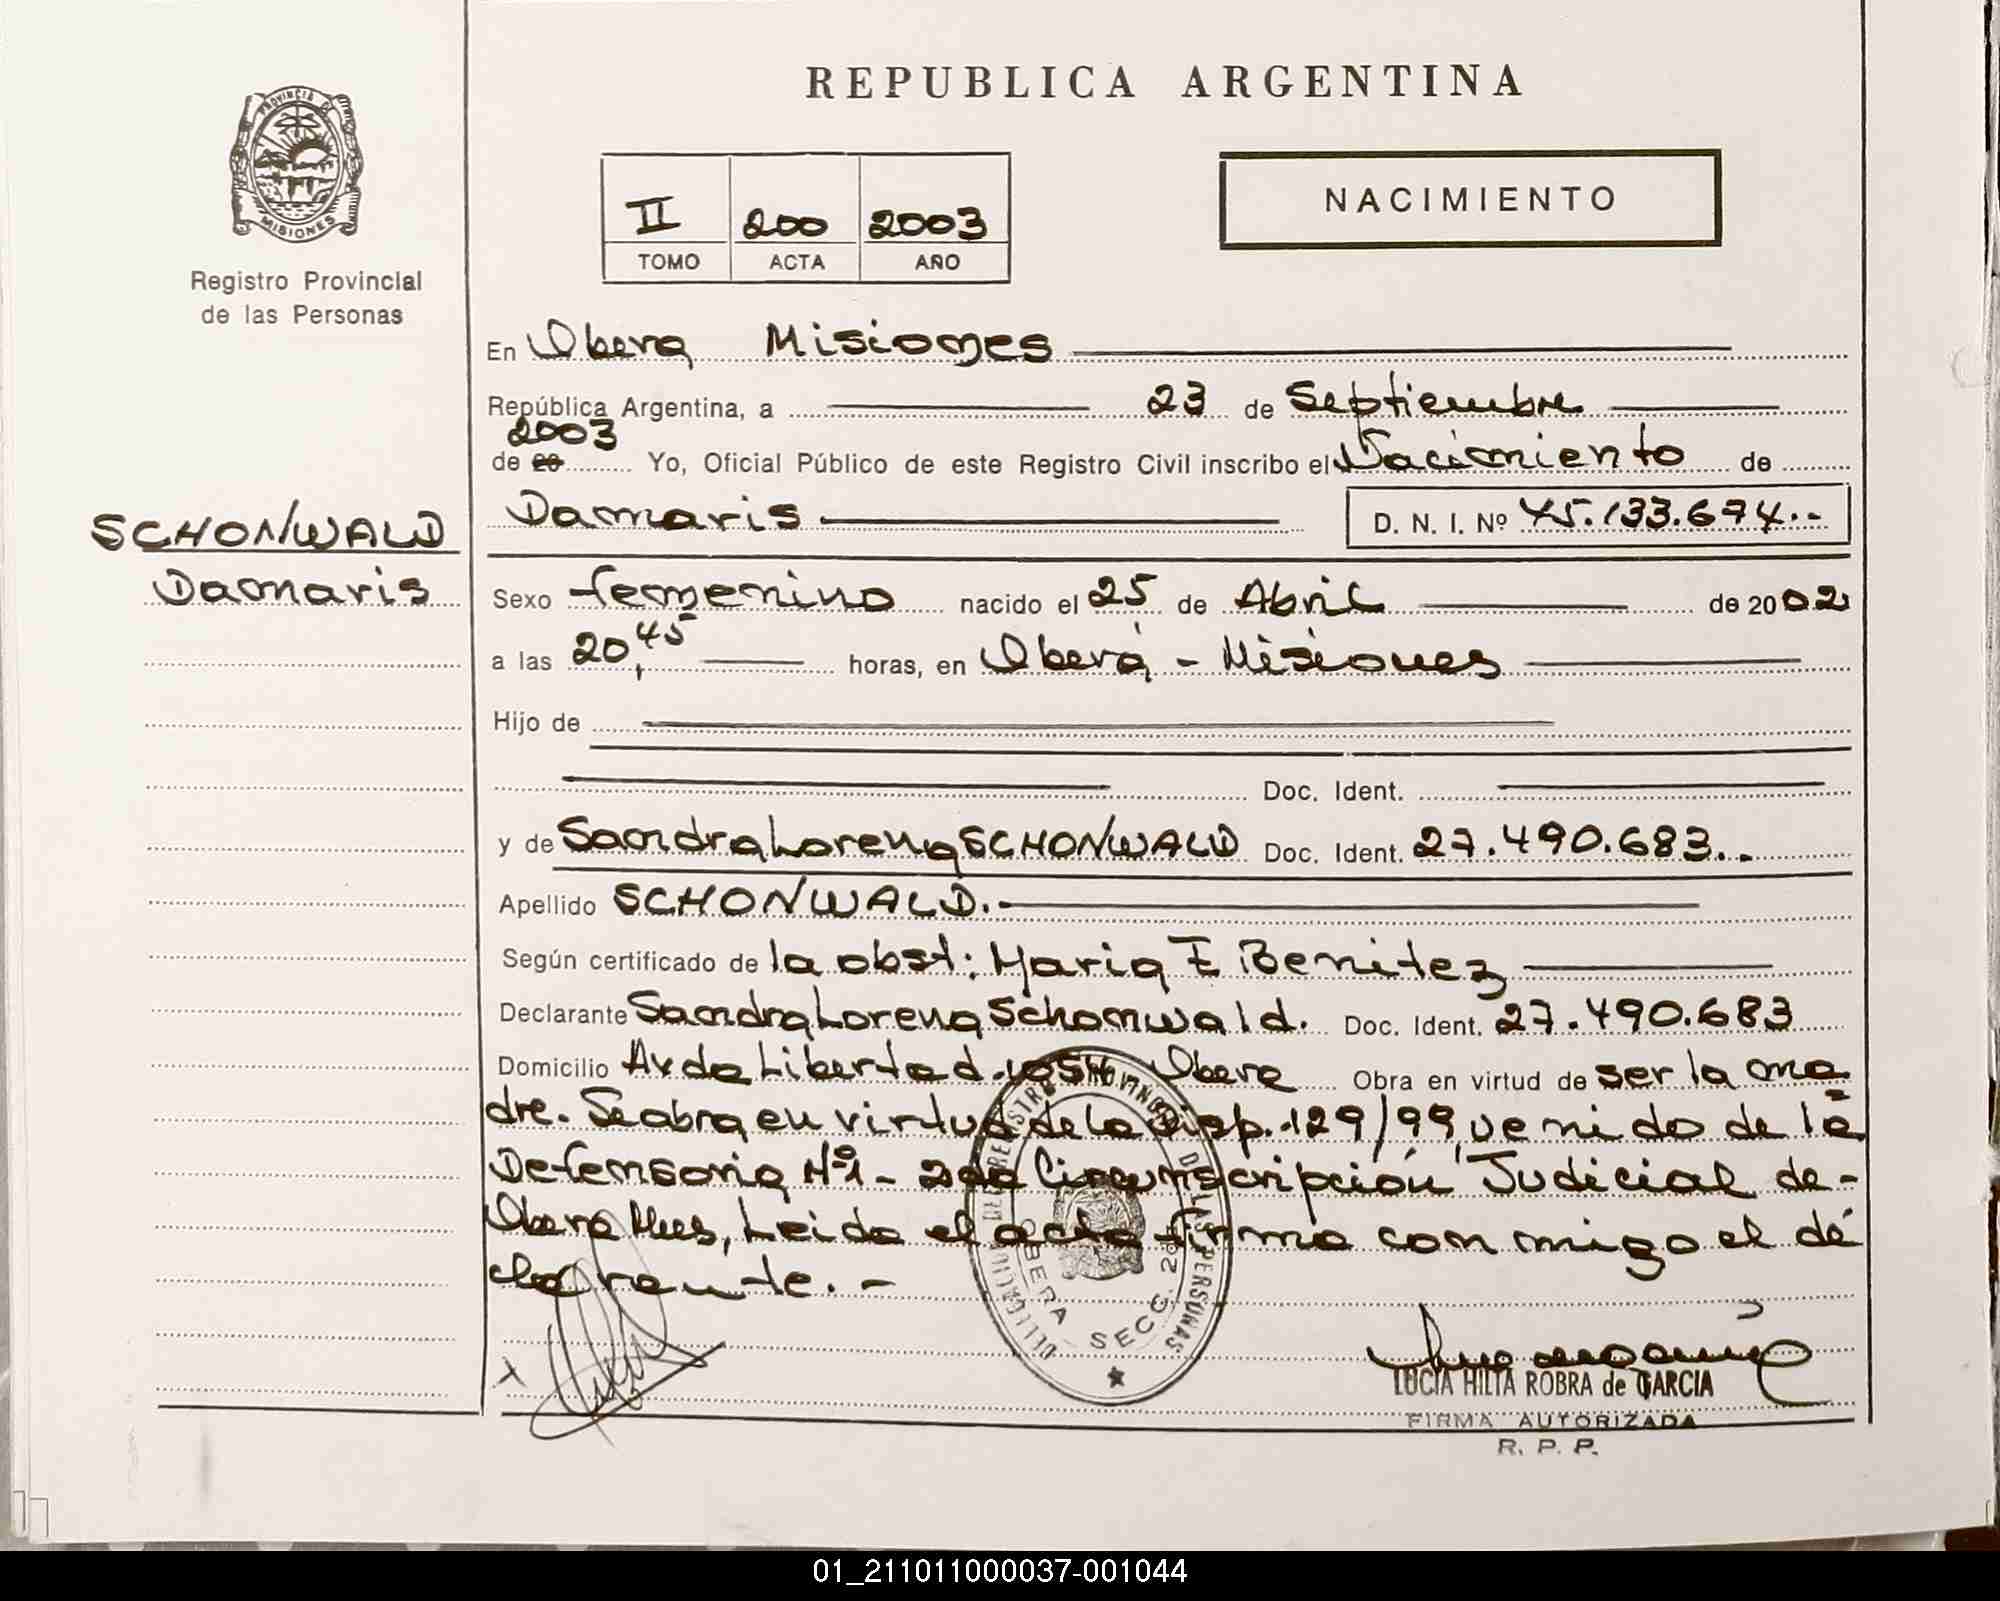 REPUBLICA ARGENTINA
PROVINCIA DE
MISIONES
Registro Provincial
de las Personas
NACIMIENTO
II 200 2003
TOMO ACTA AÑO
En Obera Misiones
República Argentina, a 23 de Septiembre
2003
de 20 Yo, Oficial Público de este Registro Civil inscribo el Nacimiento de
SCHONWALD
Damaris
Damaris D. N. I. Nº 45.133.674.-
Sexo femenino nacido el 25 de Abril de 2002
a las 20,45 horas, en Oberá - Misiones
Hijo de
Doc. Ident.
y de Sandra Lorena SCHONWALD Doc. Ident. 27.490.683.-
Apellido SCHONWALD.-
Según certificado de la obst: Maria E Benitez
Declarante Sandra Lorena Schonwald. Doc. Ident. 27.490.683
Domicilio Avda Libertad. Obera Obra en virtud de ser la ma
dre. Se abra en virtud de la Disp. 129/99 venido de la
Defensoria Nº1 - 2da Circunscripción Judicial de-
Obera Mnes, Leida el acta firma con migo el de
clarante.-
OBERA SECC. 2ª
DE LAS PERSONAS
X
LUCIA HILTA ROBRA de GARCIA
FIRMA AUTORIZADA
R. P. P.
01_211011000037-001044